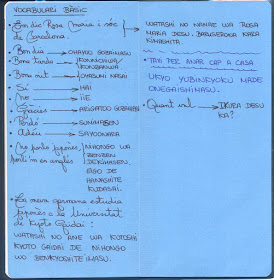 VOCABULARI BÀSIC
• Em dic Rosa Maria i sóc de Barcelona. → WATASHI NO NAMAE WA ROSA MARIA DESU. BARUSERODA KARA KIMASHITA
• Bon dia → OHAYOO GOZAIMASU
• Bona tarda → KONNICHIWA KONBANWA
• Bona nit → OYASUMI NASAI
• Sí → HAI
• No → IIE
• Gràcies → ARIGATOO GOZAIMASU
• Perdó → SUMIMASEN
• Adéu → SAYOONARA
• No parlo japonès, parli'm en anglès → NIHONGO WA ZENZEN DEKIMASEN. EIGO DE HANASHITE KUDASAI.
• La meva germana estudia japonès a la Universitat de Kyoto Gaidai:
WATASHI NO ANE WA KYOTO GAIDAI DE NIHONGO WO BENKYOSHITE IMASU.
• TAXI PER ANAR CAP A CASA
UKYO YUBINKYOKU MADE ONEGAISHIMASU.
• Quant val → IKURA DESU KA?